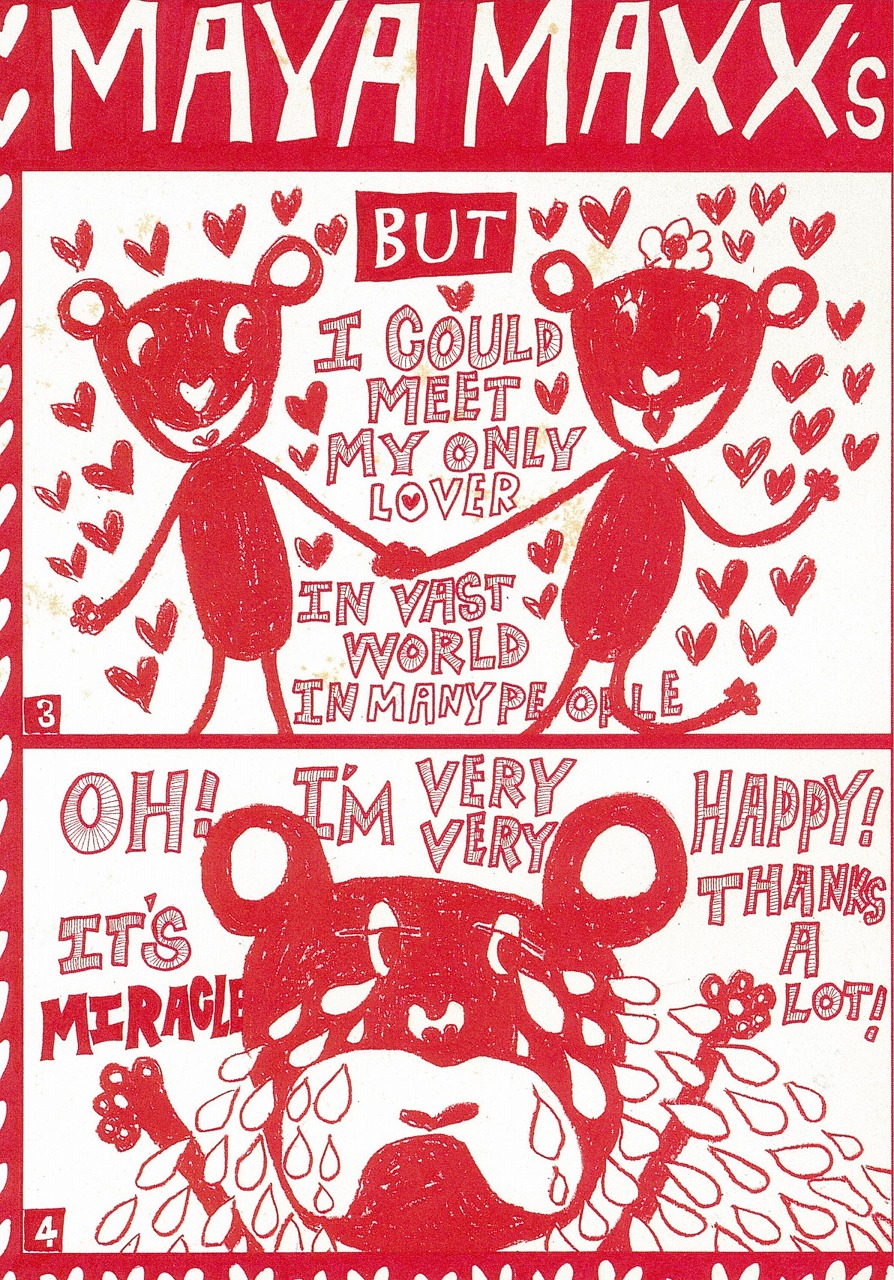 MAYA MAXX's
BUT
I COULD
MEET
MY ONLY
LOVER
IN VAST
WORLD
IN MANY PEOPLE
3
OH! I'M VERY VERY HAPPY!
THANKS
A
LOT!
IT'S
MIRACLE
4